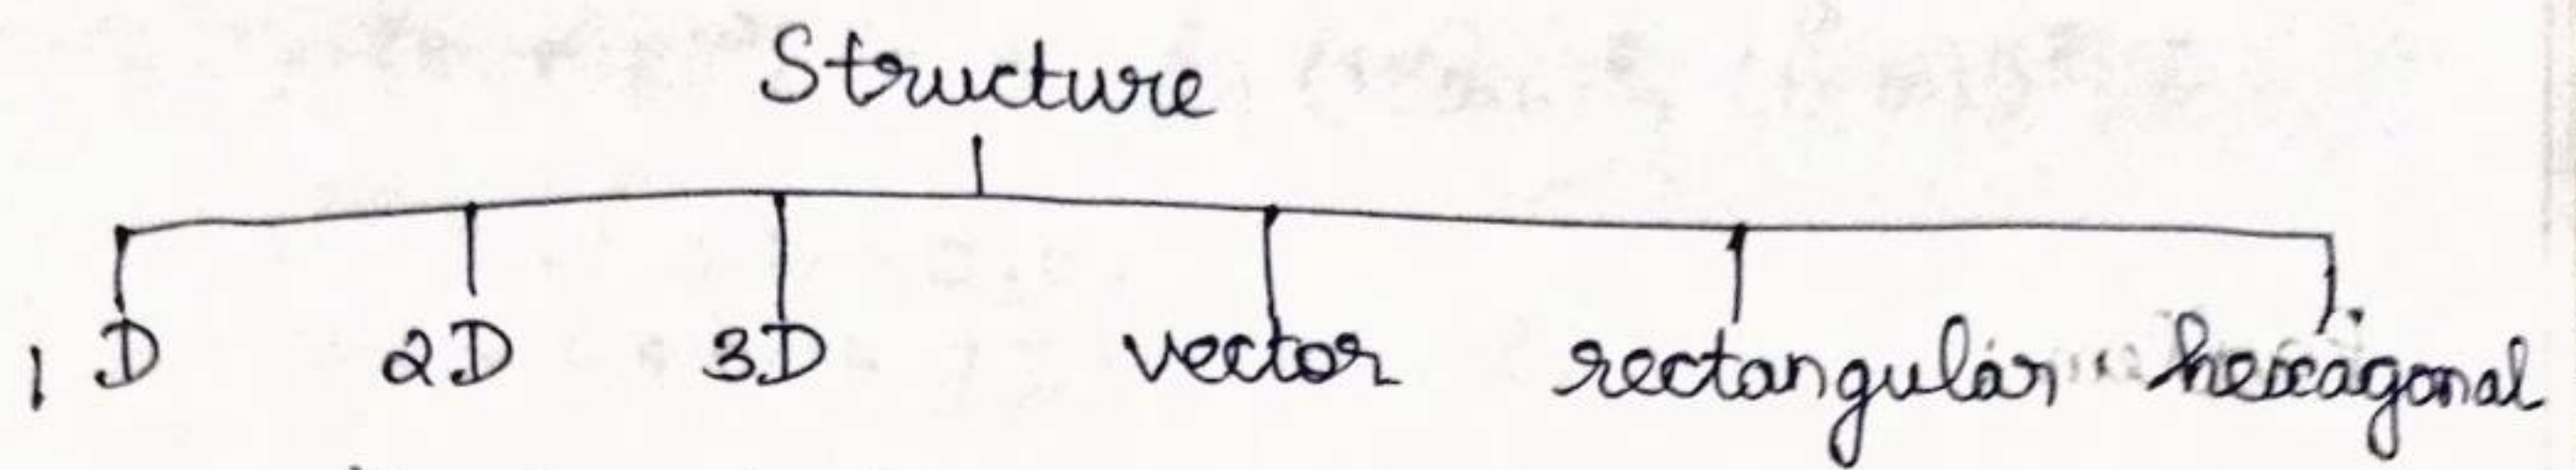 Structure
1D 2D 3D vector rectangular hexagonal